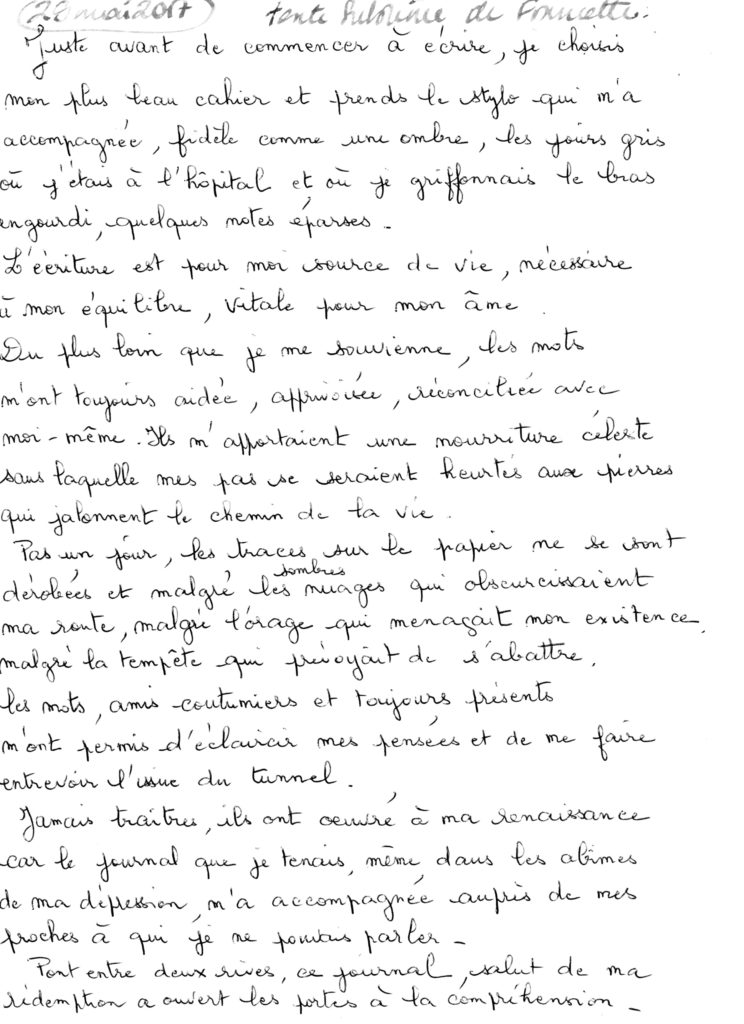 (22 mai 2017) tente de Francette.
Juste avant de commencer à écrire, je choisis
mon plus beau cahier et prends le stylo qui m'a
accompagnée, fidèle comme une ombre, les jours gris
où j'étais à l'hôpital et où je griffonnais le bras
engourdi, quelques notes éparses.
L'écriture est pour moi source de vie, nécessaire
à mon équilibre, vitale pour mon âme.
Du plus loin que je me souvienne, les mots
m'ont toujours aidée, apprivoisée, réconciliée avec
moi-même. Ils m'apportaient une nourriture céleste
sans laquelle mes pas se seraient heurtés aux pierres
qui jalonnent le chemin de la vie.
Pas un jour, les traces sur le papier ne se sont
sombres
dérobées et malgré les nuages qui obscurcissaient
ma route, malgré l'orage qui menaçait mon existence,
malgré la tempête qui prévoyait de s'abattre,
les mots, amis coutumiers et toujours présents
m'ont permis d'éclaircir mes pensées et de me faire
entrevoir l'issue du tunnel.
Jamais traitres, ils ont oeuvré à ma renaissance
car le journal que je tenais, même dans les abîmes
de ma dépression, m'a accompagnée auprès de mes
proches à qui je ne pouvais parler -
Pont entre deux rives, ce journal, salut de ma
rédemption a ouvert les portes à la compréhension -